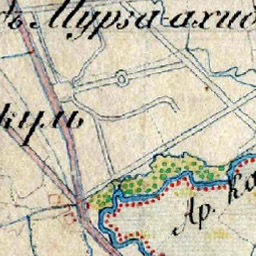 ъ Мурза ахи
куль
Ар. ка